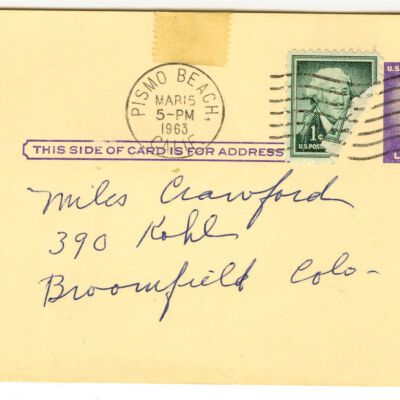 PISMO BEACH,
MAR 15
5-PM
1963
CALIF.
1¢
U.S. POST
U.S.
THIS SIDE OF CARD IS FOR ADDRESS
Miles Crawford
390 Kohl
Broomfield Colo-